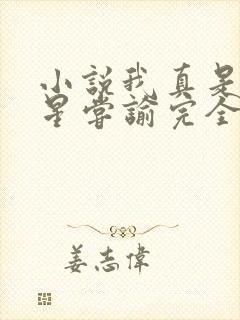 小說我真是
星嘗諭完全
姜志偉